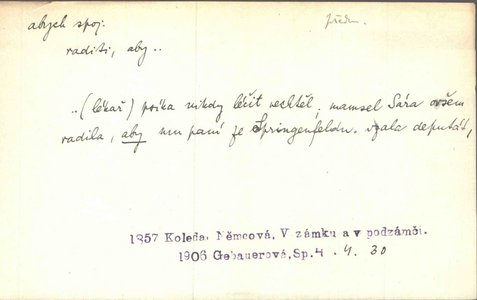 abych spoj. předm.
raditi, aby ..
..(lékař) Poíka nikdy léčit nechtěl, mamsel Sára ovšem
radila, aby mu paní ze Springenfeldu vzala deputát,
1857 Koleda. Němcová, V zámku a v podzámčí.
1906 Gebauerová, Sp. 4 . 4. 30